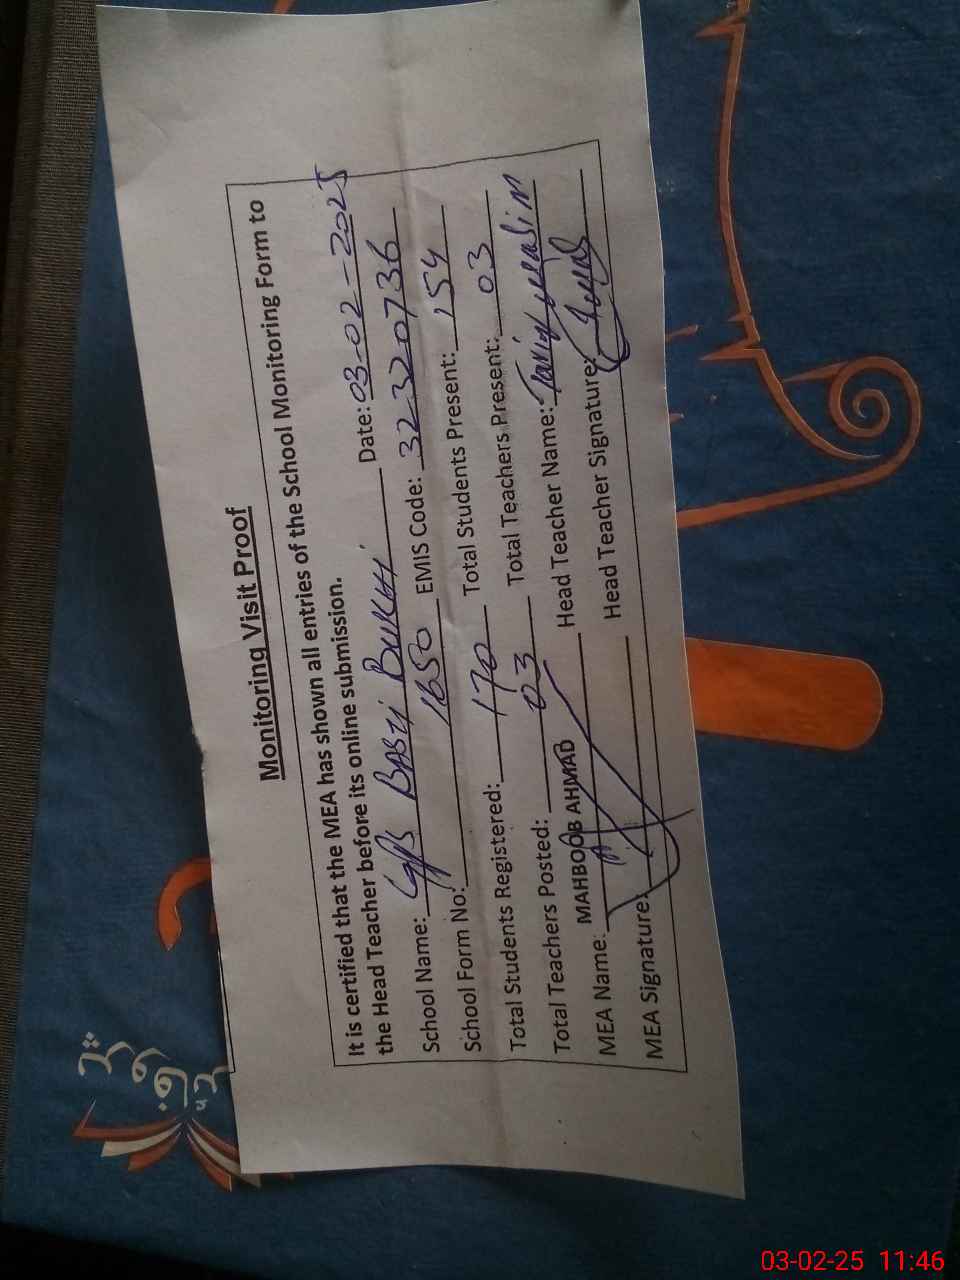 Monitoring Visit Proof
It is certified that the MEA has shown all entries of the School Monitoring Form to
the Head Teacher before its online submission.
School Name: GPS BASTI BUKHI Date: 03-02-2025
School Form No: 1650 EMIS Code: 32320736
Total Students Registered: 170 Total Students Present: 154
Total Teachers Posted: 03 Total Teachers Present: 03
MEA Name: MAHBOOB AHMAD Head Teacher Name:
MEA Signature: Head Teacher Signature:
03-02-25 11:46